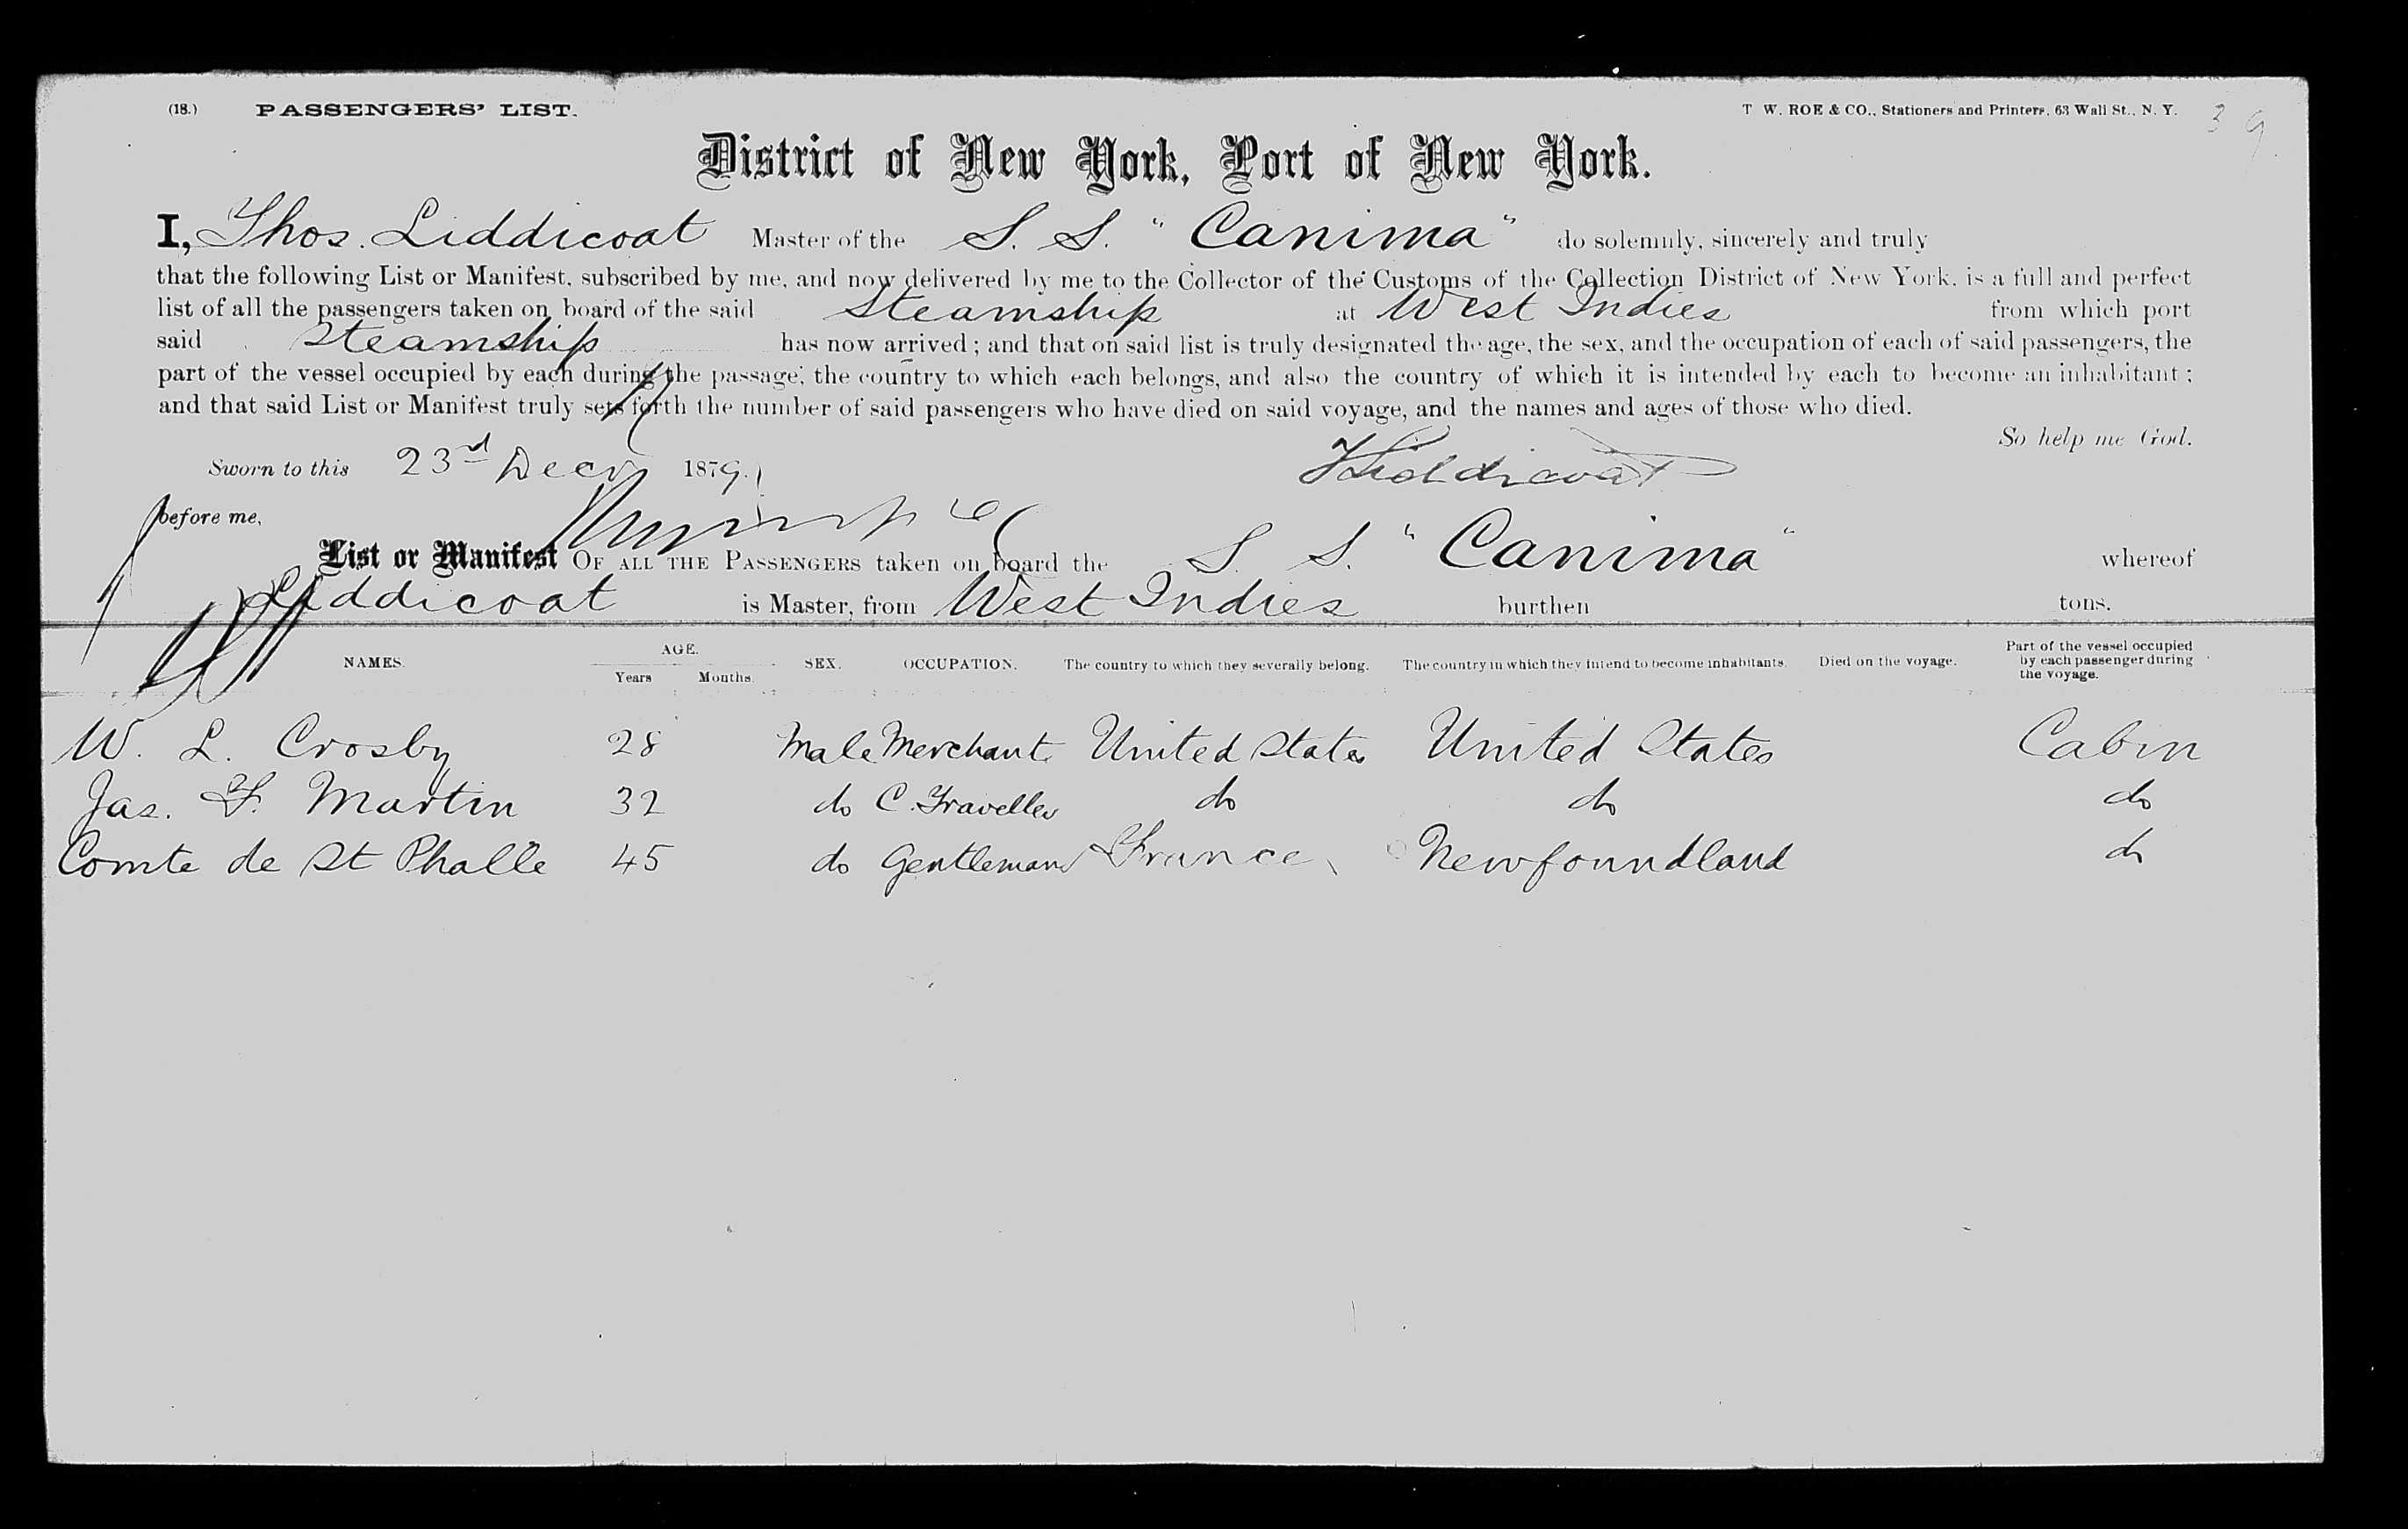 (18.) PASSENGERS' LIST. T. W. ROE & CO., Stationers and Printers, 63 Wall St., N. Y. 39
District of New York, Port of New York.
I, Thos. Liddicoat Master of the S. S. "Canima" do solemnly, sincerely and truly
that the following List or Manifest, subscribed by me, and now delivered by me to the Collector of the Customs of the Collection District of New York, is a full and perfect
list of all the passengers taken on board of the said Steamship at West Indies from which port
said Steamship has now arrived; and that on said list is truly designated the age, the sex, and the occupation of each of said passengers, the
part of the vessel occupied by each during the passage, the country to which each belongs, and also the country of which it is intended by each to become an inhabitant;
and that said List or Manifest truly sets forth the number of said passengers who have died on said voyage, and the names and ages of those who died.
So help me God.
Sworn to this 23rd Decr 1879. TLiddicoat
before me,
List or Manifest OF ALL THE PASSENGERS taken on board the S. S. "Canima" whereof
Liddicoat is Master, from West Indies burthen tons.
NAMES. AGE. Years Months. SEX. OCCUPATION. The country to which they severally belong. The country in which they intend to become inhabitants. Died on the voyage. Part of the vessel occupied by each passenger during the voyage.
W. L. Crosby 28 Male Merchant United States United States Cabin
Jas. F. Martin 32 do C. Traveller do do do
Comte de St Phalle 45 do Gentleman France Newfoundland do